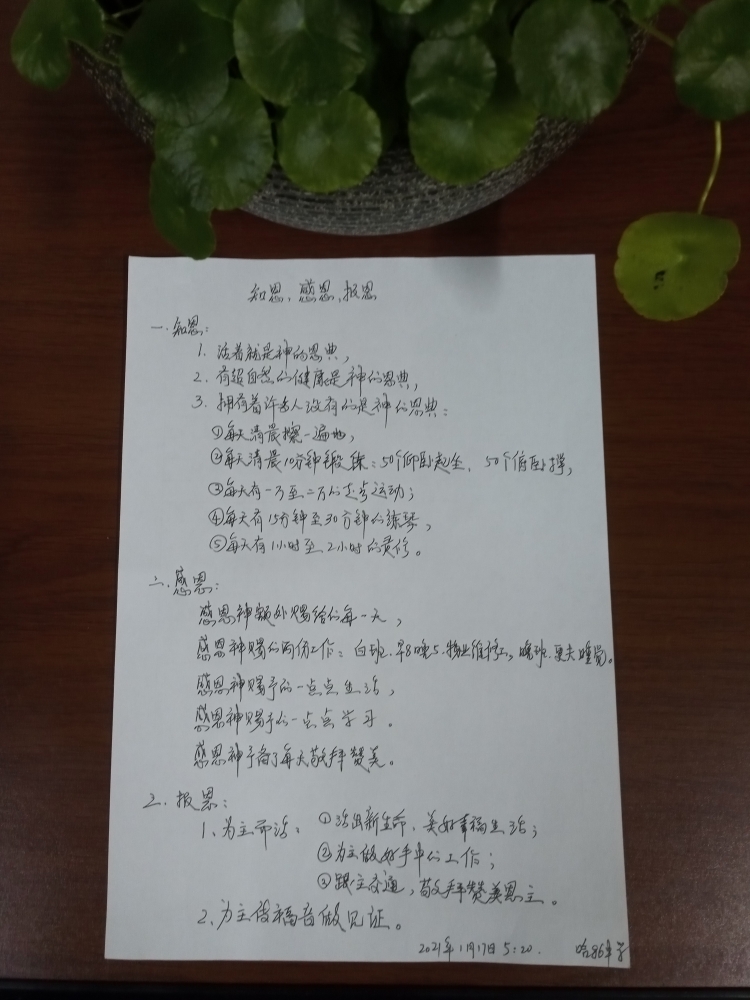 知恩、感恩、报恩
一.知恩:
1. 活着就是神的恩典,
2. 有超自然的健康是神的恩典,
3. 拥有着许多人没有的是神的恩典:
①每天清晨擦一遍地,
②每天清晨10分钟锻练:50个仰卧起坐、50个俯卧撑,
③每天有一万至二万的走步运动;
④每天有15分钟至30分钟的练琴,
⑤每天有1小时至2小时的灵修。
二.感恩:
感恩神额外赐给的每一天,
感恩神赐的两份工作:白班.早8晚5.物业维修工,晚班.更夫睡觉。
感恩神赐予的一点点生活,
感恩神赐予的一点点学习.
感恩神予备了每天敬拜赞美。
三.报恩:
1、为主而活: ①活出新生命、美好幸福生活;
②为主做好手中的工作;
③跟主交通,敬拜赞美恩主。
2、为主传福音做见证。
2021年1月17日5:20. 哈86年